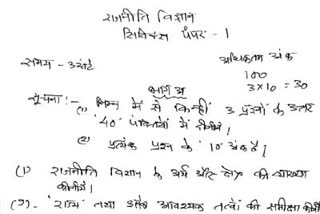 राजनीति विज्ञान
सिविक्स पेपर - 1
समय - 3 घंटे
अधिकतम अंक
100
3 x 10 = 30
भाग अ
सूचना :- (1) निम्न में से किन्हीं 3 प्रश्नों के उत्तर
'40' पंक्तियों में दीजीये।
(2) प्रत्येक प्रश्न के '10' अंक हैं।
(1) राजनीति विज्ञान के अर्थ और क्षेत्र की व्याख्या
कीजीये।
(2) 'राज्य' तथा उसके आवश्यक तत्वों की समीक्षा कीजीये